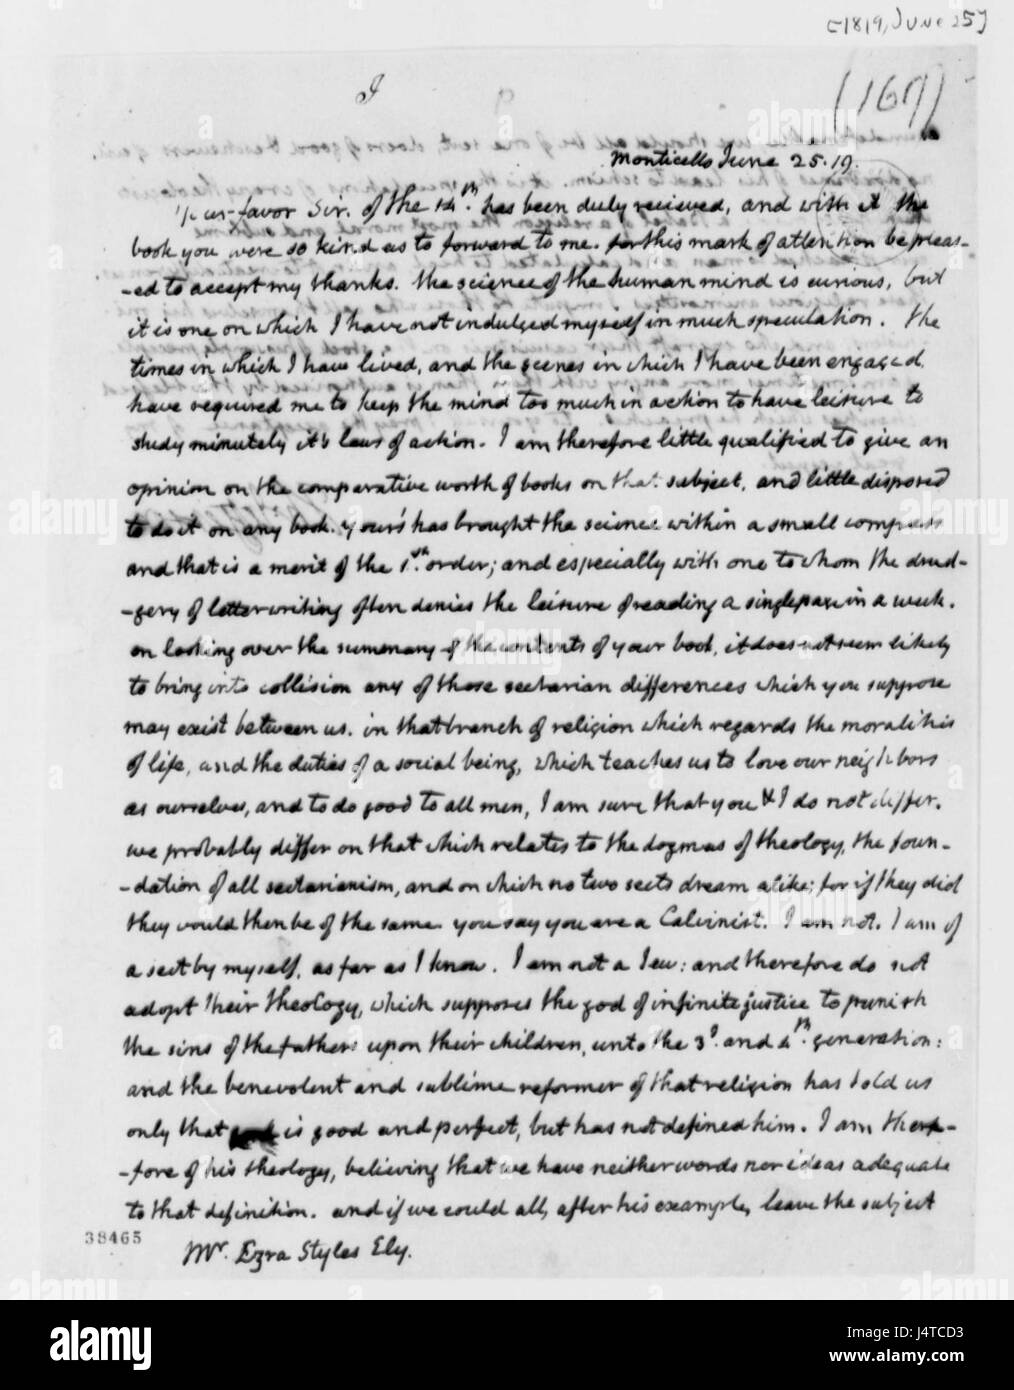 [1819, June 25]
(167)
Monticello June 25. 19.
Your favor Sir. of the 14th. has been duly recieved, and with it the
book you were so kind as to forward to me. for this mark of attention be pleas-
-ed to accept my thanks. the science of the human mind is curious, but
it is one on which I have not indulged myself in much speculation. the
times in which I have lived, and the scenes in which I have been engaged
have required me to keep the mind too much in action to have leisure to
study minutely it's laws of action. I am therefore little qualified to give an
opinion on the comparative worth of books on that subject, and little disposed
to do it on any book. your's has brought the science within a small compass
and that is a merit of the 1st. order; and especially with one to whom the drud-
-gery of letter writing often denies the leisure of reading a single page in a week.
on looking over the summary of the contents of your book, it does not seem likely
to bring into collision any of those sectarian differences which you suppose
may exist between us. in that branch of religion which regards the moralities
of life, and the duties of a social being, which teaches us to love our neighbors
as ourselves, and to do good to all men, I am sure that you & I do not differ.
we probably differ on that which relates to the dogmas of theology, the foun-
-dation of all sectarianism, and on which no two sects dream alike; for if they did
they would then be of the same. you say you are a Calvinist. I am not. I am of
a sect by myself, as far as I know. I am not a Jew: and therefore do not
adopt their theology, which supposes the god of infinite justice to punish
the sins of the fathers upon their children, unto the 3d. and 4th. generation:
and the benevolent and sublime reformer of that religion has told us
only that god is good and perfect, but has not defined him. I am there-
-fore of his theology, believing that we have neither words nor ideas adequate
to that definition. and if we could all, after his example, leave the subject
38465
Mr. Ezra Styles Ely.
alamy
Image ID: J4TCD3
www.alamy.com